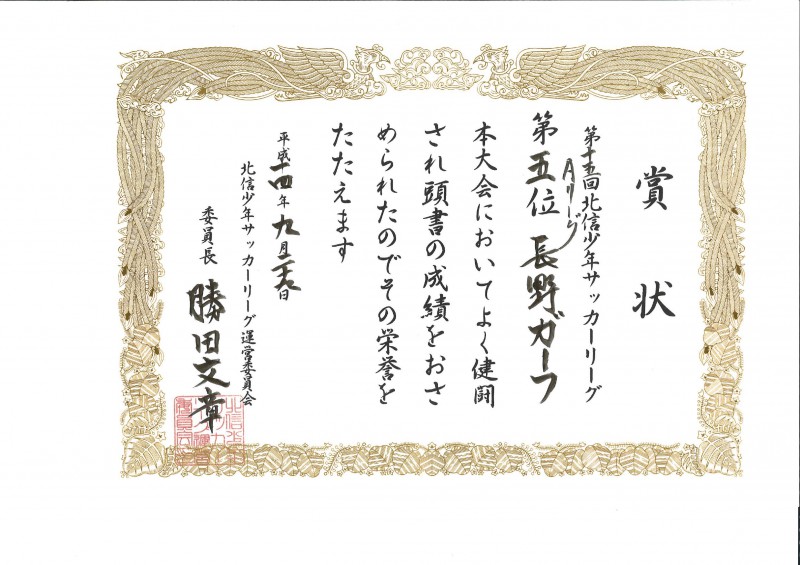 賞状
第十五回北信少年サッカーリーグ
Aリーグ
第五位 長野ガーフ
本大会においてよく健闘
され頭書の成績をおさ
められたのでその栄誉を
たたえます
平成十四年九月二九日
北信少年サッカーリーグ運営委員会
委員長 勝田文章